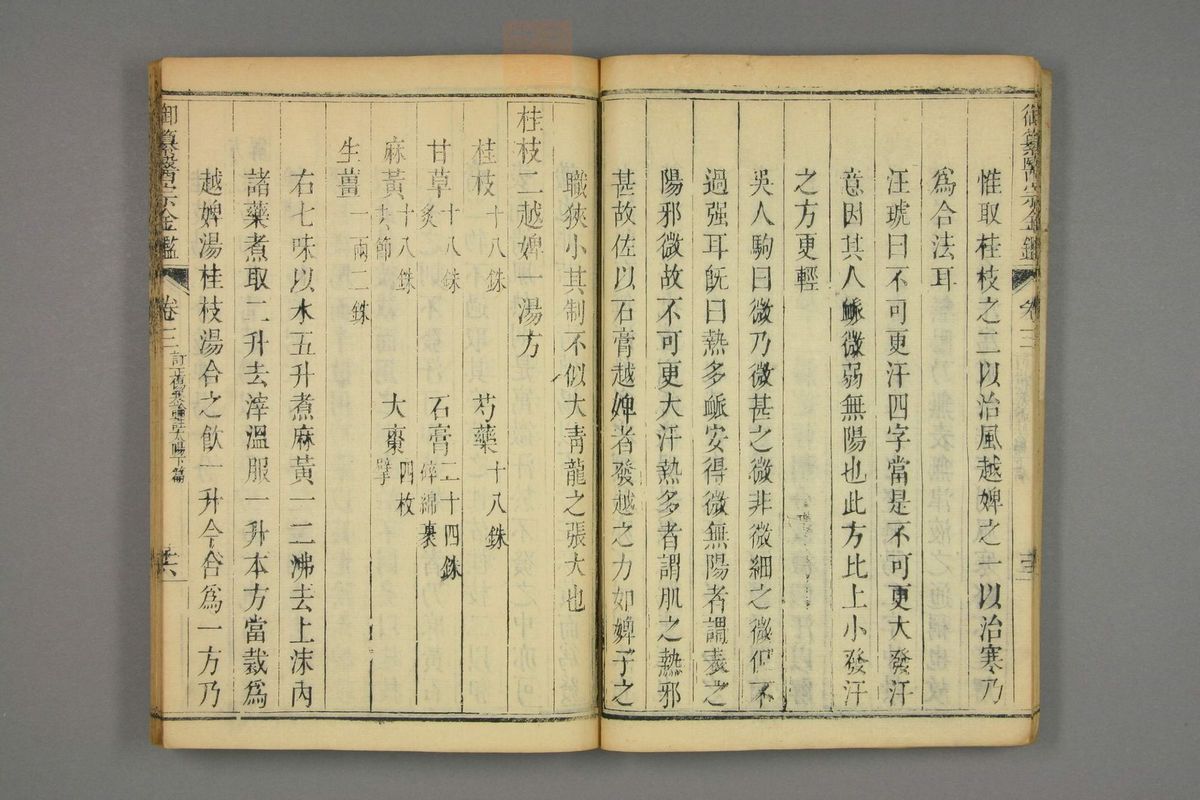 惟取桂枝之二以治風越婢之一以治寒乃
爲合法耳
汪琥曰不可更汗四字當是不可更大發汗
意因其人脈微弱無陽也此方比上小發汗
之方更輕
吳人駒曰微乃微甚之微非微細之微但不
過强耳旣曰熱多脈安得微無陽者謂表之
陽邪微故不可更大汗熱多者謂肌之熱邪
甚故佐以石膏越婢者發越之力如婢子之
職狹小其制不似大靑龍之張大也
桂枝二越婢一湯方
桂枝十八銖 芍藥十八銖
甘草十八銖炙 石膏二十四銖碎綿裹
麻黃十八銖去節 大棗四枚擘
生薑一兩二銖
右七味以水五升煮麻黃一二沸去上沫內
諸藥煮取二升去滓溫服一升本方當裁爲
越婢湯桂枝湯合之飲一升今合爲一方乃
御纂醫宗金鑑 卷三 訂正傷寒論註太陽下篇
御纂醫宗金鑑 卷三